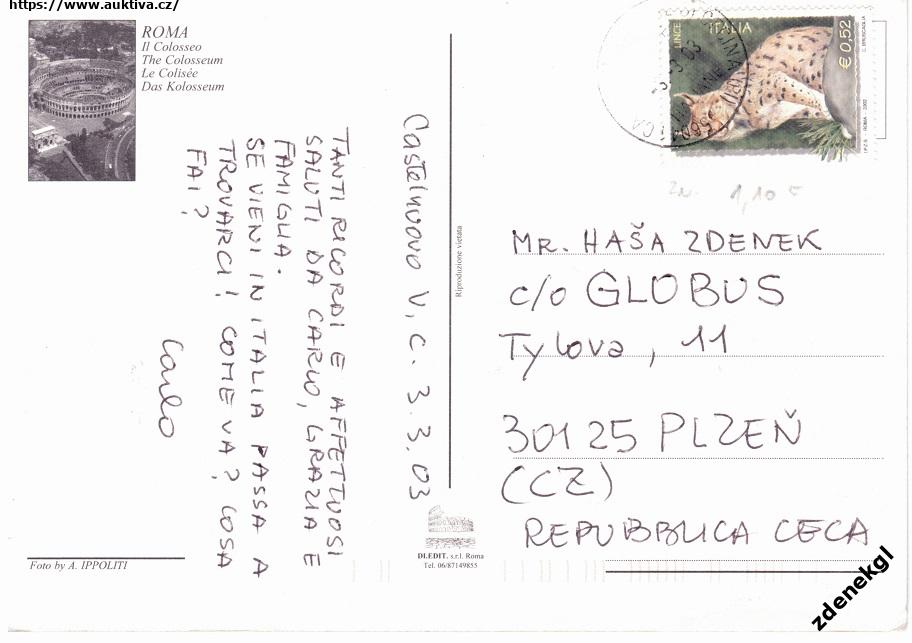 https://www.auktiva.cz/
ROMA
Il Colosseo
The Colosseum
Le Colisée
Das Kolosseum
Castelnuovo V.C. 3.3.03
TANTI RICORDI E AFFETTUOSI
SALUTI DA CARLO, GRAZIA E
FAMIGLIA.
SE VIENI IN ITALIA PASSA A
TROVARCI! COME VA? COSA
FAI?
Carlo
Foto by A. IPPOLITI
Riproduzione vietata
DI.EDIT. s.r.l. Roma
Tel. 06/87149855
LINCE
ITALIA
€ 0,52
I.P.Z.S. ROMA 2002
C. BRUSCAGLIA
1,10 €
MR. HAŠA ZDENEK
c/o GLOBUS
Tylova, 11
30125 PLZEŇ
(CZ)
REPUBBLICA CECA
zdenekgl